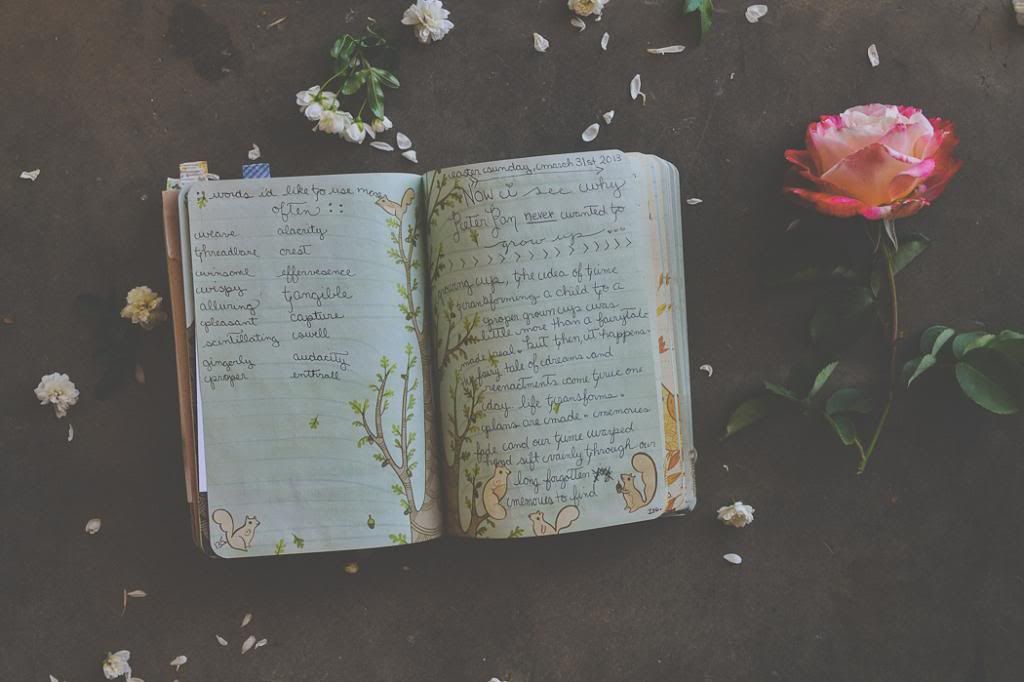 words i'd like to use more
often ::
weave alacrity
threadbare crest
winsome effervesence
wispy tangible
alluring capture
pleasant cowell
scintillating
gingerly audacity
proper enthrall
easter sunday, march 31st 2013
Now i see why
Peter Pan never wanted to
grow up ...
growing up, the idea of time
transforming a child to a
proper grown up was
little more than a fairytale
made real. but then, it happens.
fairy tale of dreams and
reenactments come true one
day. life transforms.
plans are made. memories
fade and our time warped
head sift vainly through our
long forgotten
memories to find